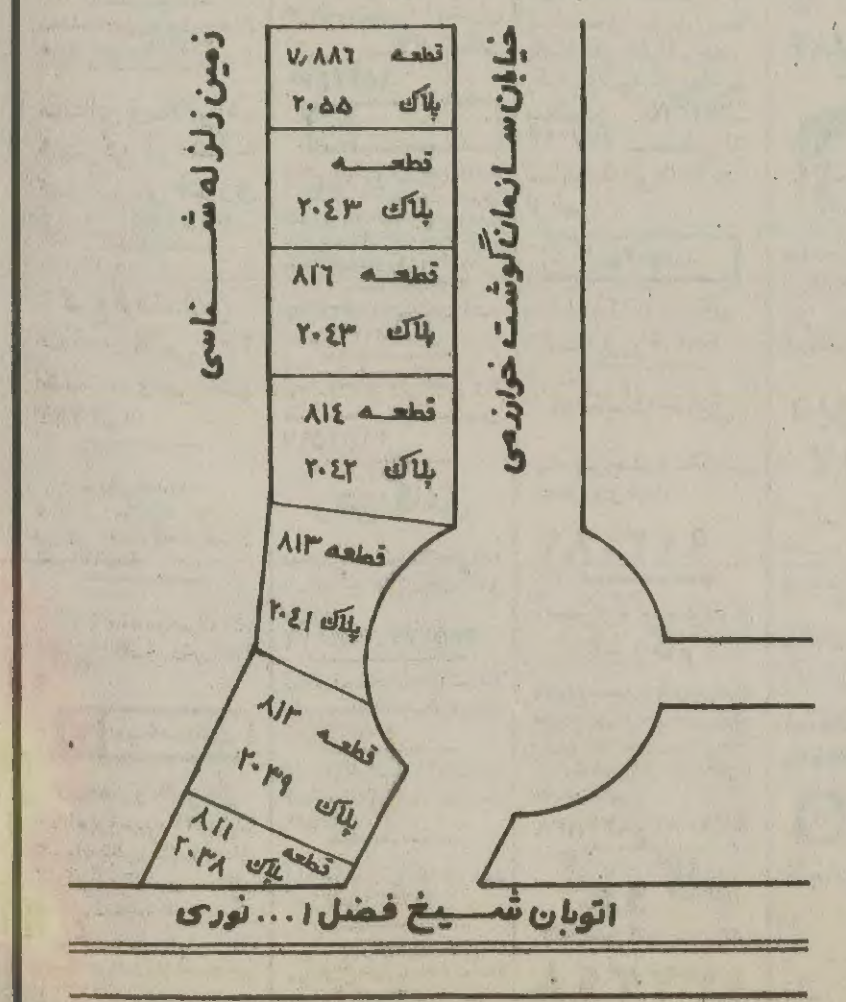 زمین زلزله شناسی
خیابان سازمان گوشت خوارزمی
قطعه ۷/۸۸۶
پلاک ۲۰۵۵
قطعه
پلاک ۲۰۴۳
قطعه ۸۱۶
پلاک ۲۰۴۳
قطعه ۸۱۴
پلاک ۲۰۴۲
قطعه ۸۱۳
پلاک ۲۰۴۱
قطعه ۸۱۳
پلاک ۲۰۳۹
قطعه ۸۱۱
پلاک ۲۰۳۸
اتوبان شیخ فضل ا... نوری